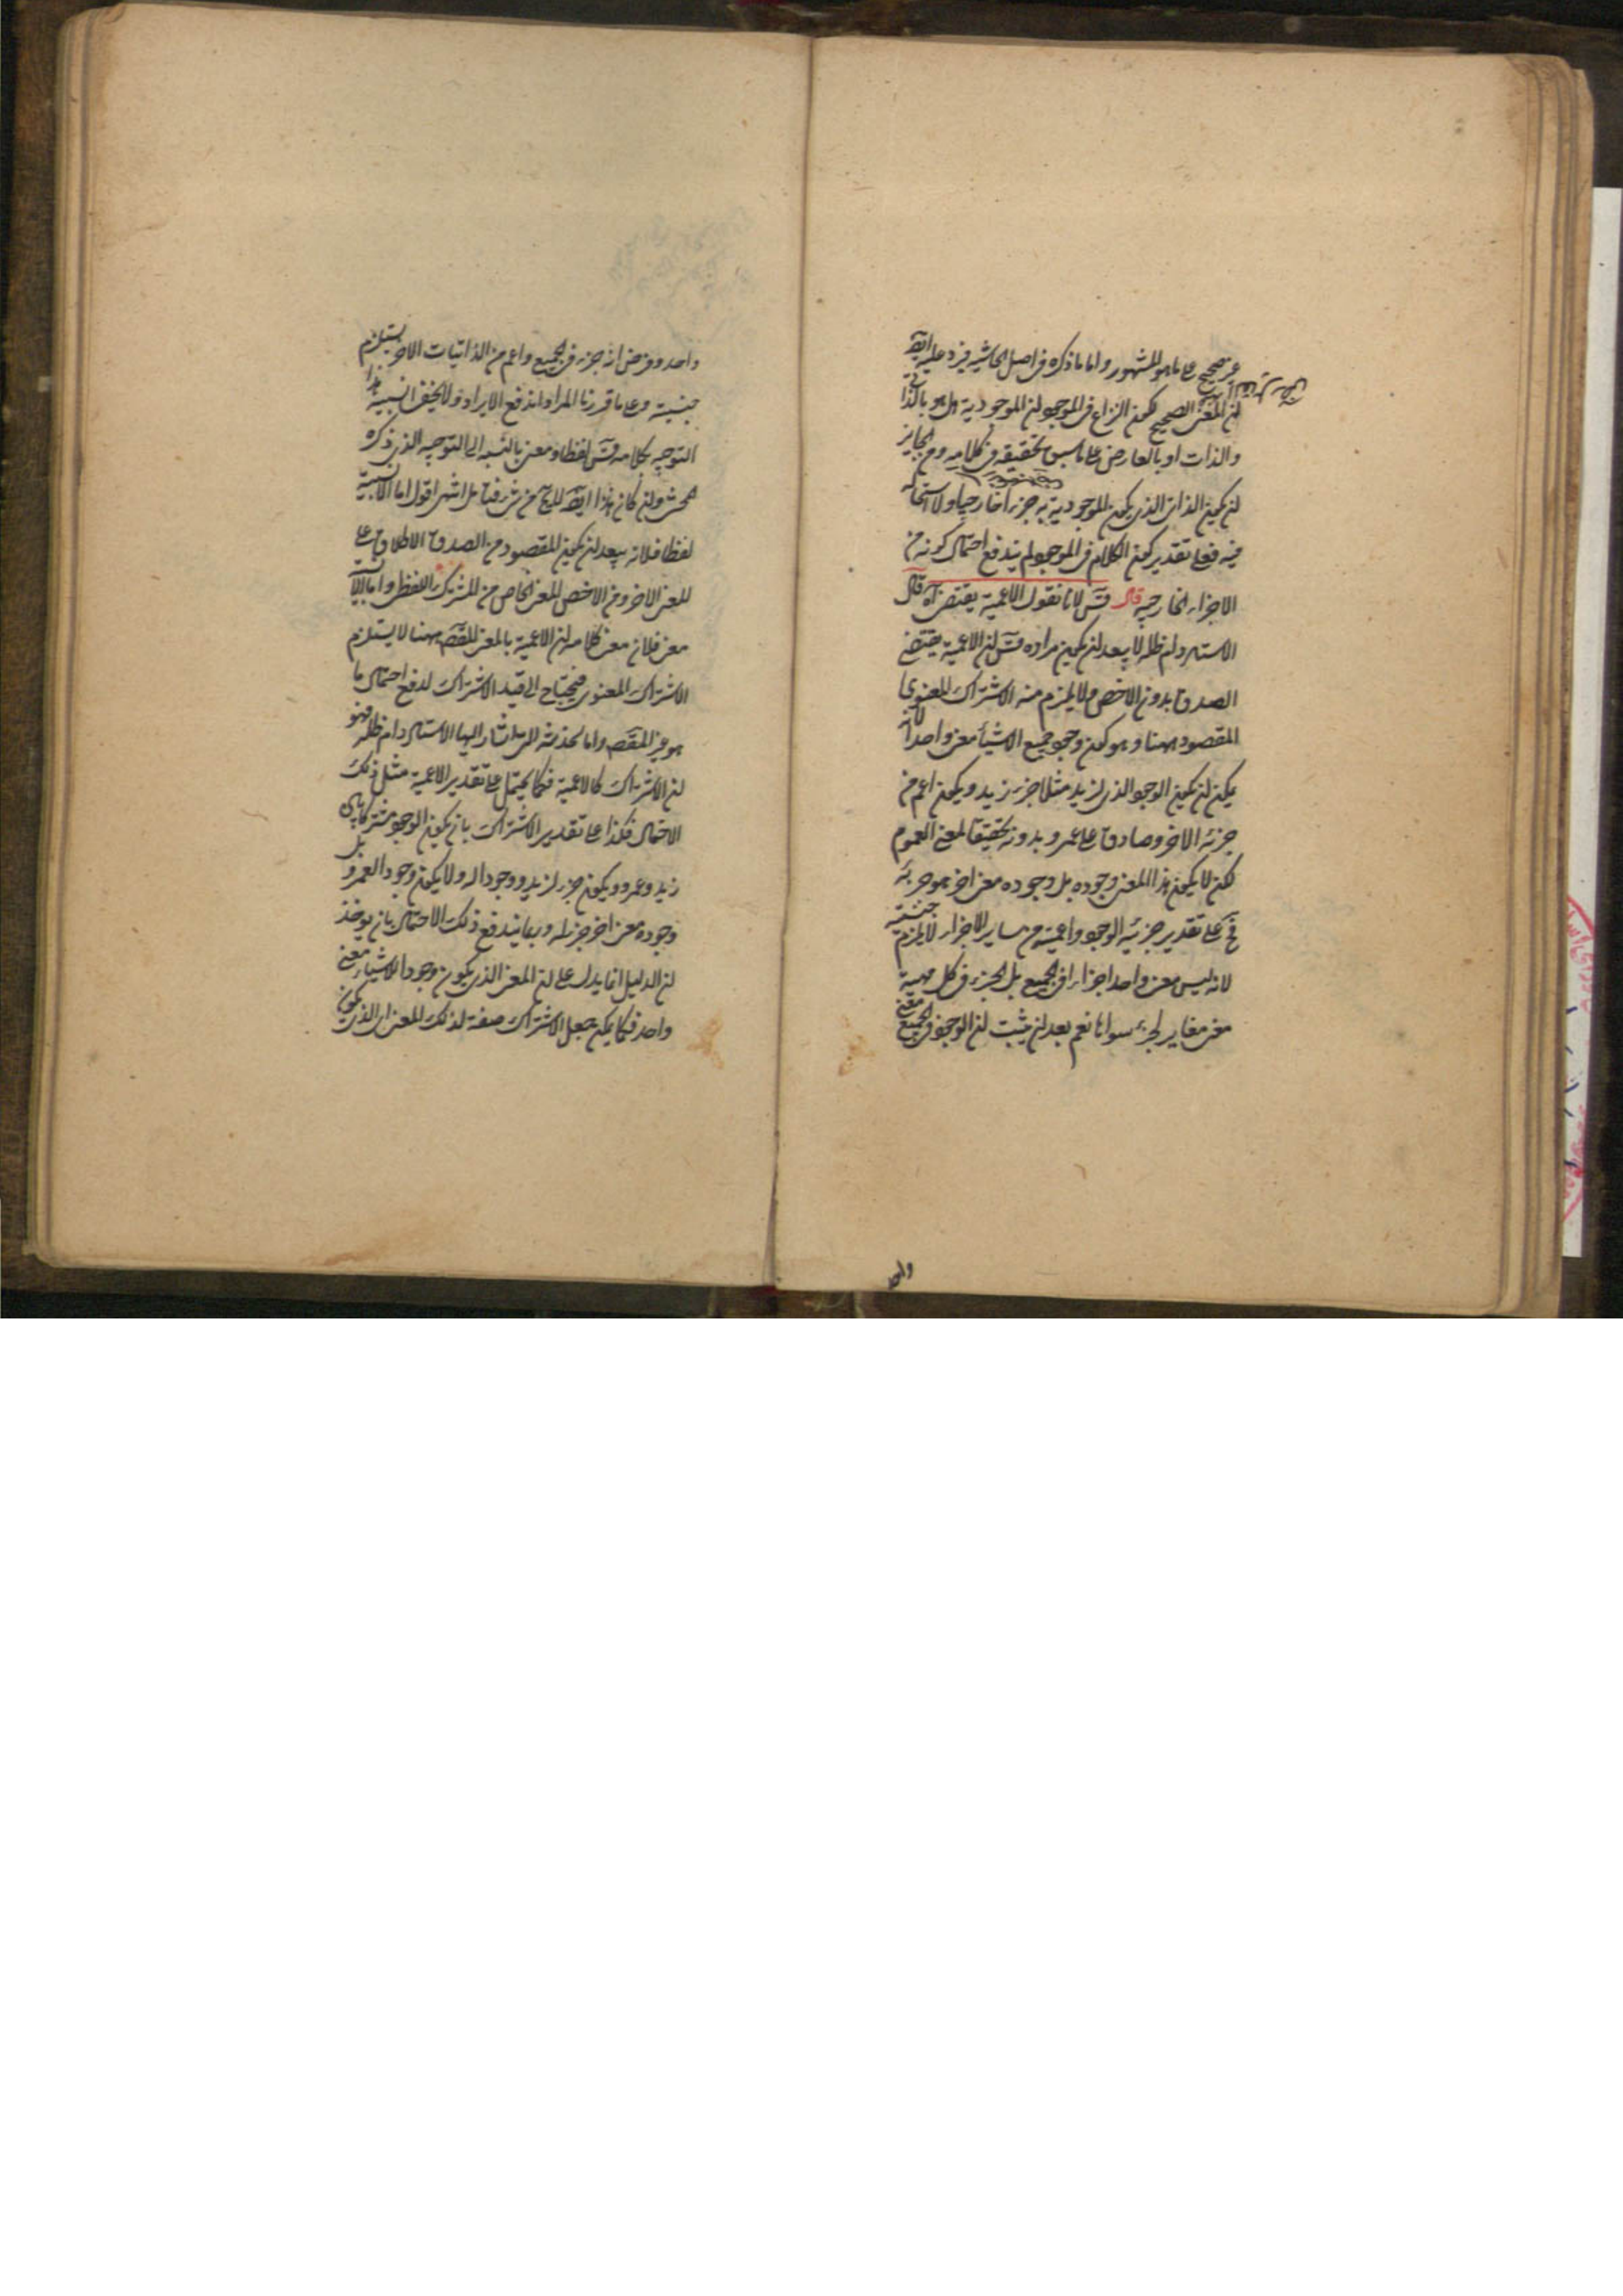 غير صحيح على ما هو المشهور واما ما ذكره فى اصل الحاشيه فيرد عليه ايضا
لان المعنى الصحيح لكون النزاع فى الموجود ان الموجودية هل هو بالذات
والذات او بالعارض على ما سبق تحقيقه فى كلامه ومن الجايز
ان يكون الذات الذى يكون الموجودية به جزءا خارجيا ولا استحاله
فيه فعلى تقدير كون الكلام فى الموجود لم يندفع احتمال كونه من
الاجزاء الخارجيه قال قس لانا نقول الاعمية يقتضى آه قال
الاستاد دام ظله لا يبعد ان يكون مراده قس ان الاعمية يقتضى
الصدق بدون الاخص ولا يلزم منه الاشتراك المعنوى
المقصود ههنا وهو كون وجود جميع الاشياء معنى واحدا لانه
يمكن ان يكون الوجود الذى لزيد مثلا جزء زيد ويكون اعم من
جزئه الاخر وصادق على عمرو بدونه تحقيقا لمعنى العموم
لكن لا يكون هذا المعنى وجوده بل وجوده معنى اخر هو جزئه
فح على تقدير جزئيه الوجود واعميته من ساير الاجزاء لا يلزم جنسيته
لانه ليس معنى واحد اجزاء فى الجميع بل الجزء فى كل مهية
معنى مغاير لجزء سواها نعم بعد ان يثبت ان الوجود فى الجميع معنى
واحد
واحد وفرض انه جزء فى الجميع واعم من الذاتيات الاخر يستلزم
جنسيته وعلى ما قررنا المراد اندفع الايراد ولا يخفى انسبية هذا
التوجيه بكلامه قس لفظا ومعنى بالنسبه الى التوجيه الذى ذكره
المحشى وان كان هذا ايضا اقول اما الانسبية
لفظا فلانه يبعد ان يكون المقصود من الصدق الاطلاق على
المعنى الاخر ومن الاخص المعنى الخاص من المشترك اللفظى واما
معنى فلان معنى كلامه ان الاعمية بالمعنى المقصد ههنا لا يستلزم
الاشتراك المعنوى فيحتاج الى قيد الاشتراك لدفع احتمال ما
هو غير المقصد واما الخدشه التى اشار اليها الاستاد دام ظله فهو
ان الاشتراك كالاعمية فكما يحتمل على تقدير الاعمية مثل ذلك
الاحتمال فكذا على تقدير الاشتراك بان يكون الوجود مشتركا بين
زيد وعمرو ويكون جزء لزيد ووجودا له ولا يكون وجود العمرو بل
وجوده معنى اخر جزء له وربما يندفع ذلك الاحتمال بان يوخذ
ان الدليل انما يدل على ان المعنى الذى يكون وجود الاشياء معنى
واحد فكما يمكن جعل الاشتراك صفة لذلك المعنى اى الذى يكون